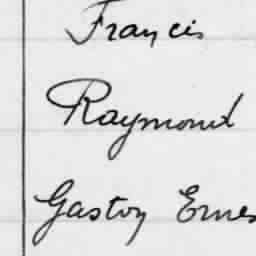 Francis
Raymond
Gaston Ernes